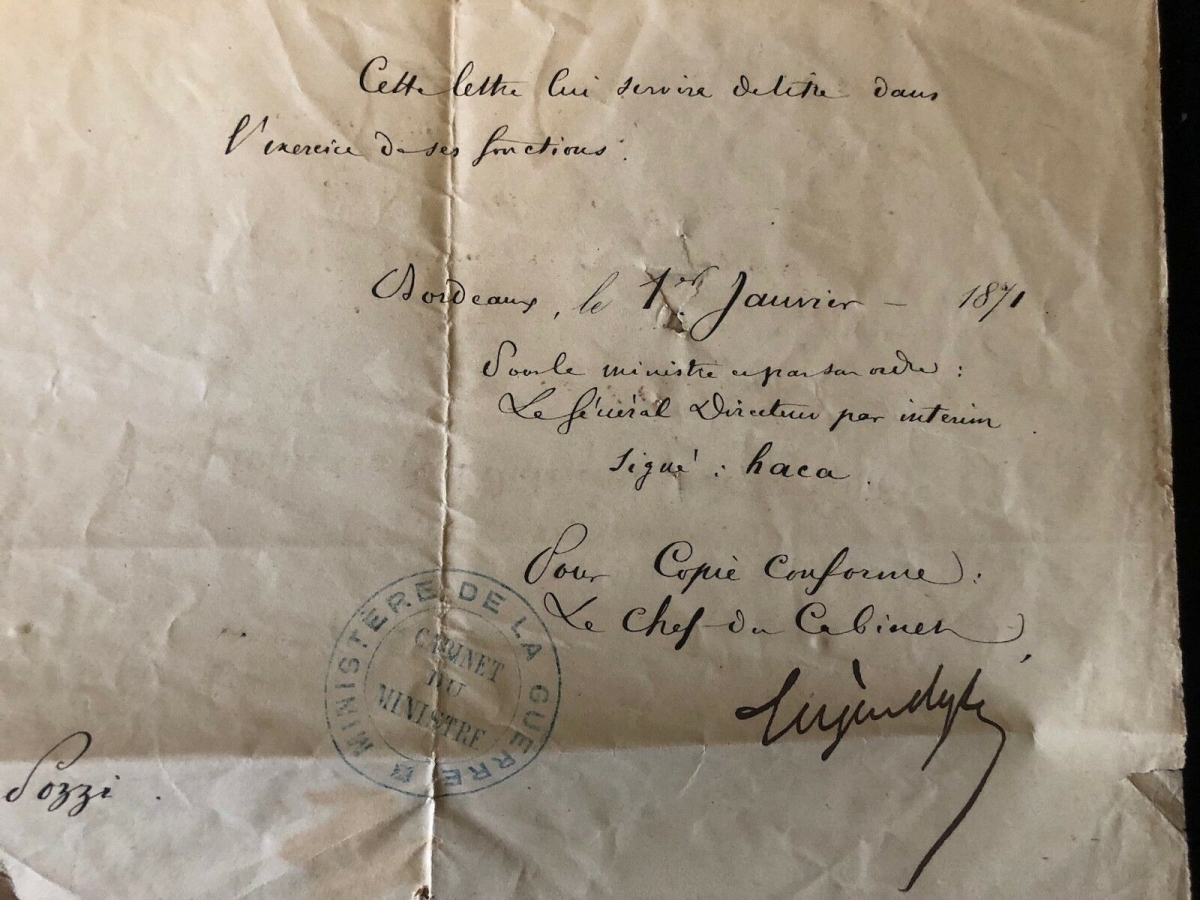 Cette lettre lui servira de titre dans
l'exercice de ses fonctions.
Bordeaux, le 1er Janvier - 1871
Pour le ministre et par son ordre :
Le Général Directeur par interim
signé : haca.
Pour Copie conforme :
Le Chef du Cabinet,
MINISTÈRE DE LA GUERRE
CABINET
DU
MINISTRE
Pozzi.